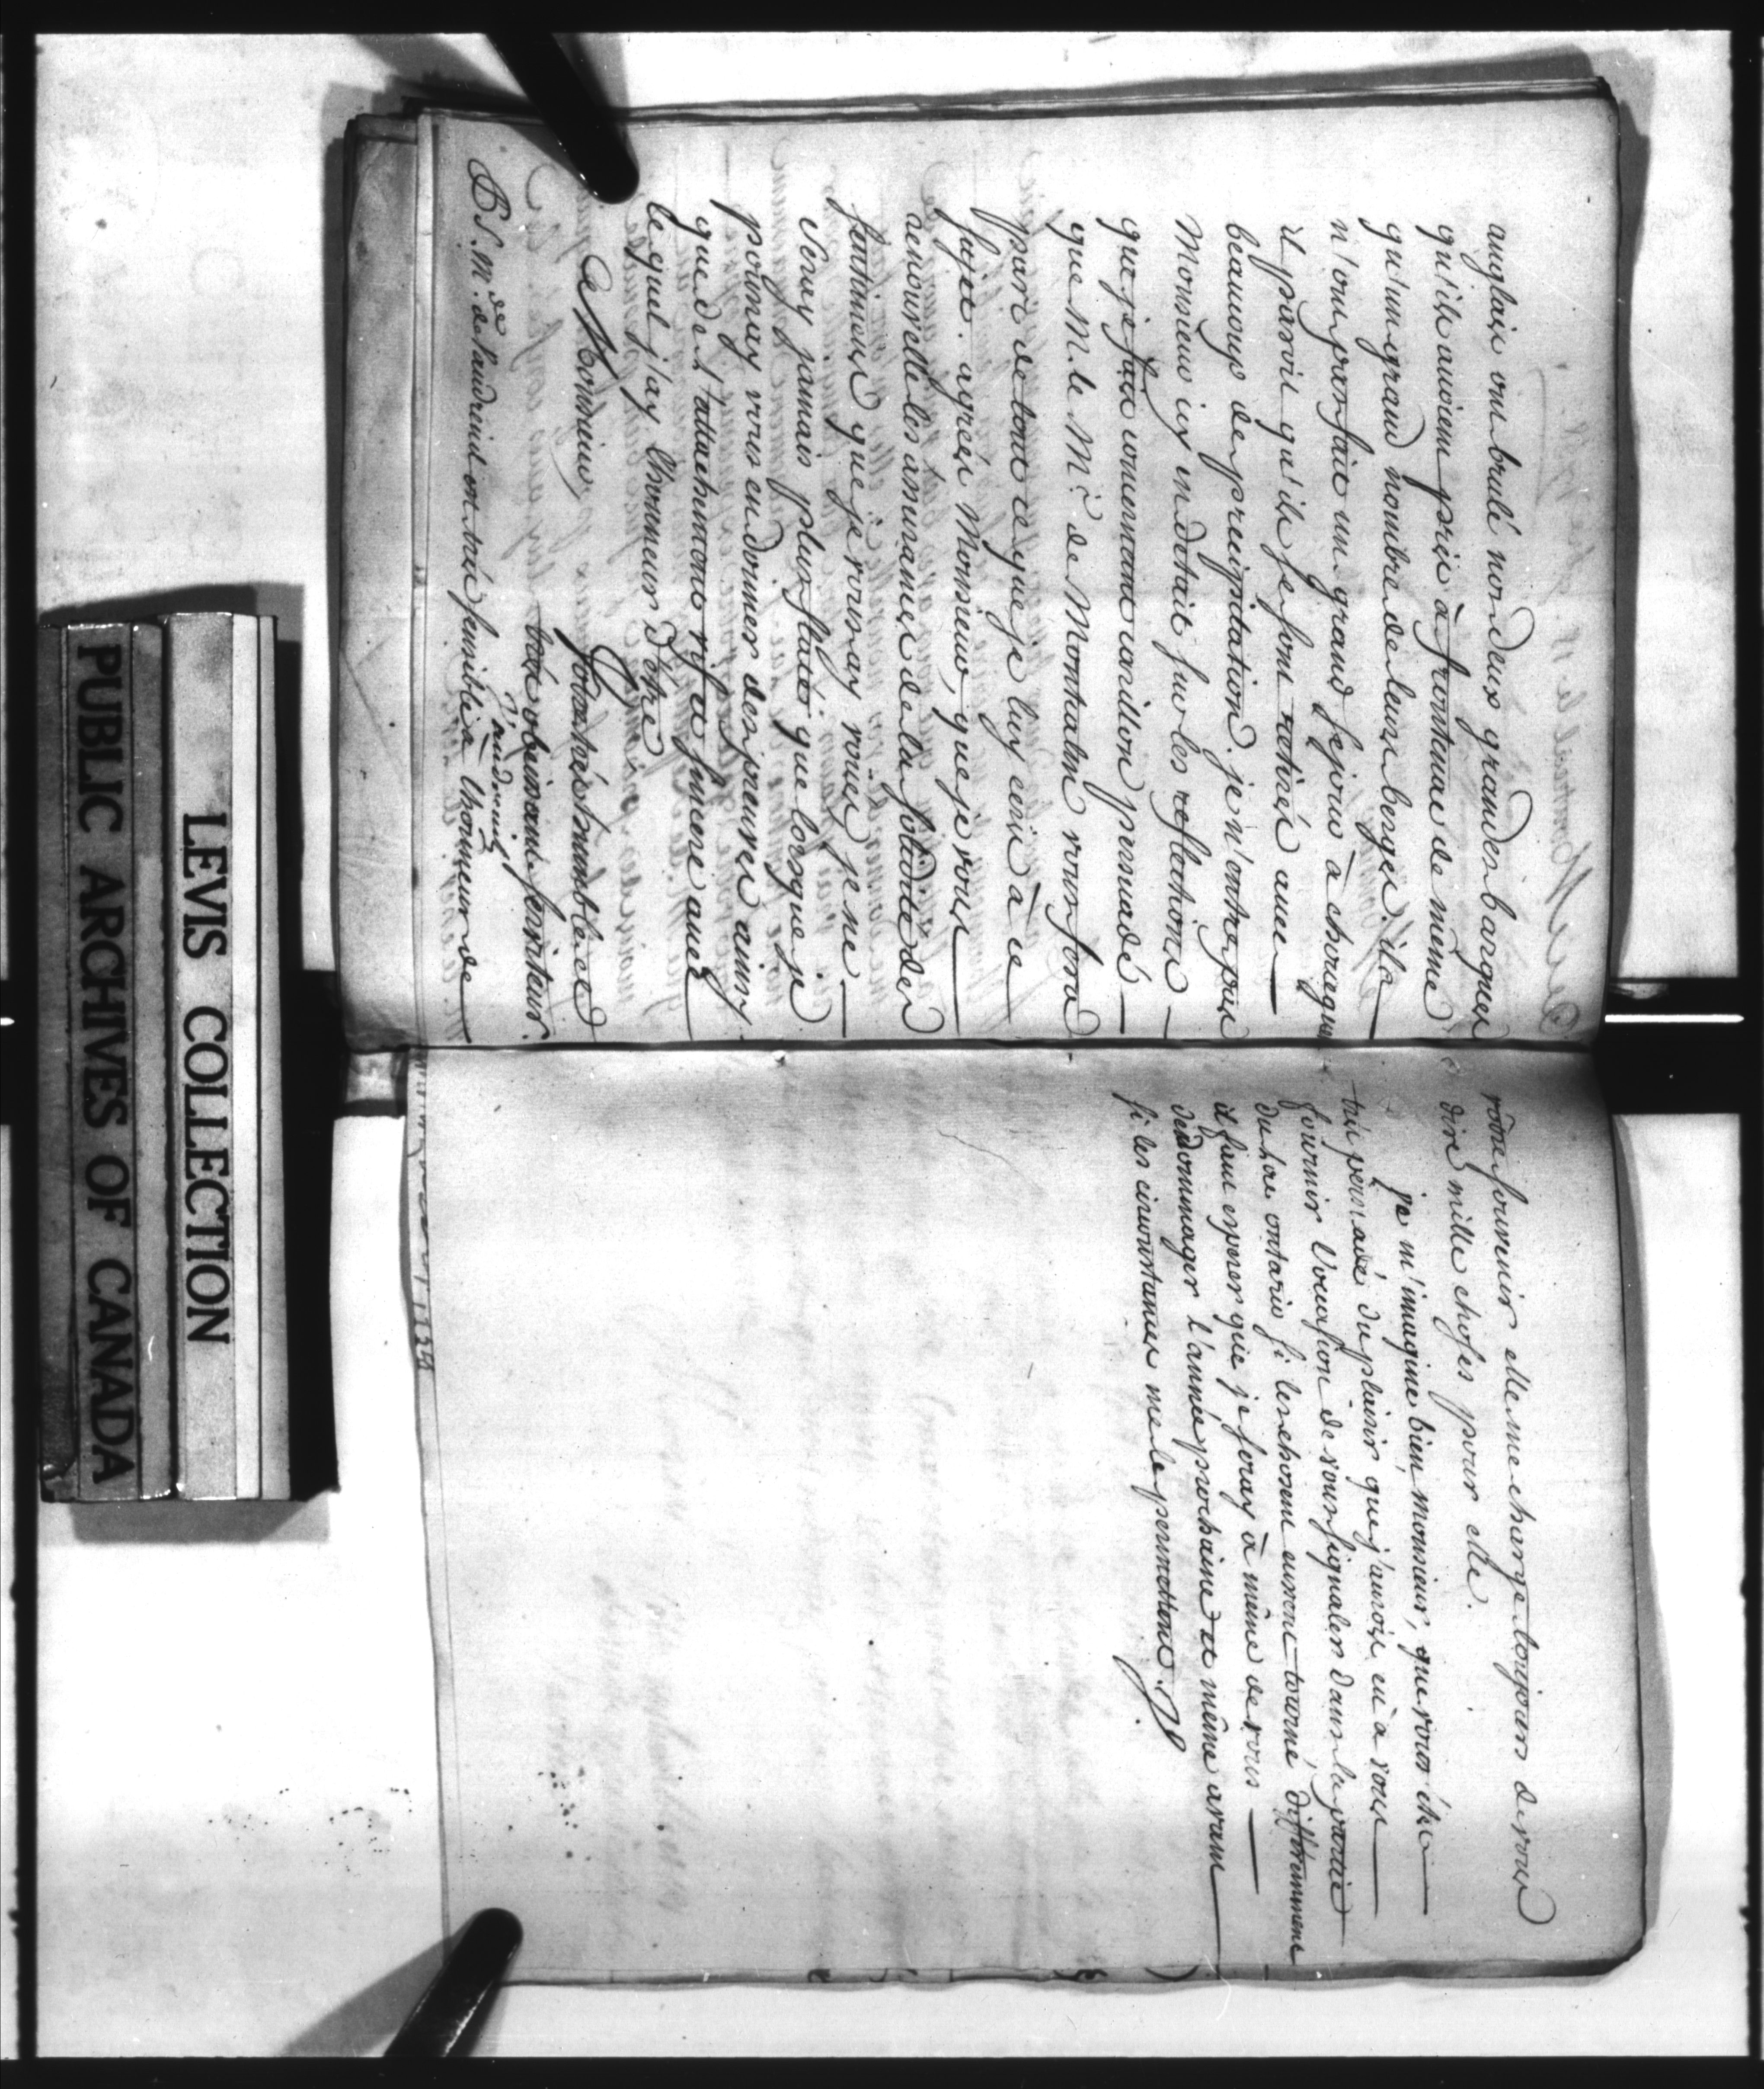 anglais ont brulé nos deux grandes barques
qu'ils avoient prise à frontenac de même
qu'un grand nombre de leurs berges. ils
n'ont pas fait un grand sejour à chouaguen
il paroit qu'ils se sont retirés avec
beaucoup de precipitation. je n'entre pas
Monsieur icy en detail sur les reflections
que je fais concernant carillon persuadé
que M. le M.is de Montcalm vous fera
part de tout ce que je luy ecris à ce
sujet. agreés Monsieur, que je vous
renouvelle les assurances de la solidité des
sentimens que je vous ay voués je ne
seray jamais plus flatté que lorsque je
pourray vous en donner des preuves ainsy
que de l'attachement vif et sincere avec
lequel j'ay l'honneur d'être
Monsieur
Votre très humble et
très obeissant serviteur.
Vaudreuil
P.S. M.de de Vaudreuil est très sensible à l'honneur de
votre souvenir elle me charge toujours de vous
dire mille choses pour elle.
je m'imagine bien, monsieur, que vous étes
très persuadé du plaisir que j'aurois eu à vous
fournir l'occasion de vous signaler dans la partie
du lac ontario si les choses eussent tourné différemment
il faut esperer que je seray à même de vous
dédommager l'année prochaine et même avant
si les circonstances me le permettent.
LEVIS COLLECTION
PUBLIC ARCHIVES OF CANADA